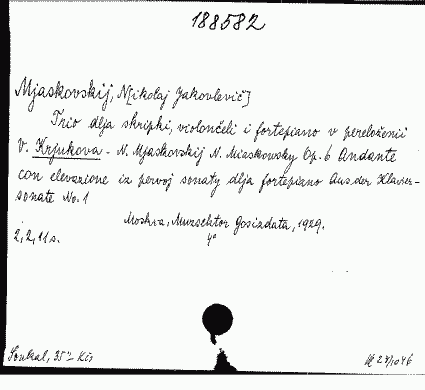 188582
Mjaskovskij, N[ikolaj Jakovlevič]
Trio dlja skripki, violončeli i fortepiano v pereloženii
V. Krjukova - N. Mjaskovskij N. Miaskowsky Op. 6 Andante
con elevazione iz pervoj sonaty dlja fortepiano Aus der Klavier-
sonate No. 1
Moskva, Muzsektor Gosizdata, 1929.
2, 2, 11 s. 4°
Soukal, 35.- Kčs